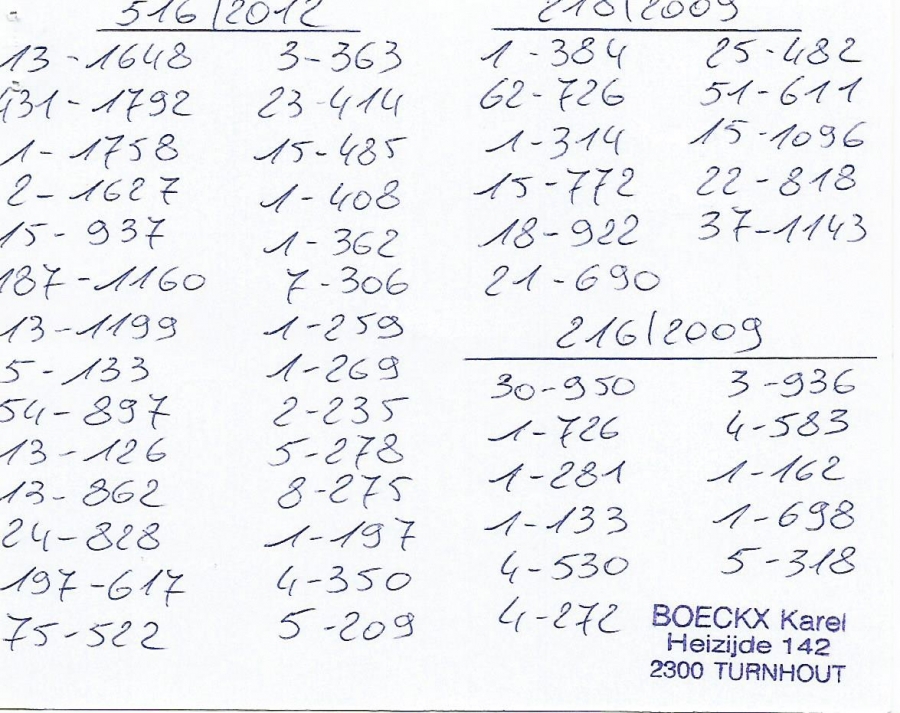 516/2012
13-1648 3-363
131-1792 23-414
1-1758 15-485
2-1627 1-408
15-937 1-362
187-1160 7-306
13-1199 1-259
5-133 1-269
54-897 2-235
13-126 5-278
13-862 8-275
24-828 1-197
197-617 4-350
75-522 5-209
218/2009
1-384 25-482
62-726 51-611
1-314 15-1096
15-772 22-818
18-922 37-1143
21-690
216/2009
30-950 3-936
1-726 4-583
1-281 1-162
1-133 1-698
4-530 5-318
4-272
BOECKX Karel
Heizijde 142
2300 TURNHOUT